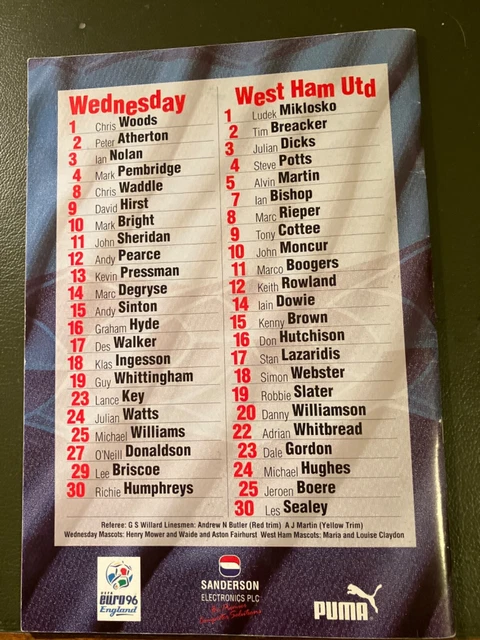 Wednesday
1 Chris Woods
2 Peter Atherton
3 Ian Nolan
4 Mark Pembridge
8 Chris Waddle
9 David Hirst
10 Mark Bright
11 John Sheridan
12 Andy Pearce
13 Kevin Pressman
14 Marc Degryse
15 Andy Sinton
16 Graham Hyde
17 Des Walker
18 Klas Ingesson
19 Guy Whittingham
23 Lance Key
24 Julian Watts
25 Michael Williams
27 O'Neill Donaldson
29 Lee Briscoe
30 Richie Humphreys
West Ham Utd
1 Ludek Miklosko
2 Tim Breacker
3 Julian Dicks
4 Steve Potts
5 Alvin Martin
7 Ian Bishop
8 Marc Rieper
9 Tony Cottee
10 John Moncur
11 Marco Boogers
12 Keith Rowland
14 Iain Dowie
15 Kenny Brown
16 Don Hutchison
17 Stan Lazaridis
18 Simon Webster
19 Robbie Slater
20 Danny Williamson
22 Adrian Whitbread
23 Dale Gordon
24 Michael Hughes
25 Jeroen Boere
30 Les Sealey
Referee: G S Willard Linesmen: Andrew N Butler (Red trim) A J Martin (Yellow Trim)
Wednesday Mascots: Henry Mower and Waide and Aston Fairhurst West Ham Mascots: Maria and Louise Claydon
UEFA
euro96
England
SANDERSON
ELECTRONICS PLC
PUMA